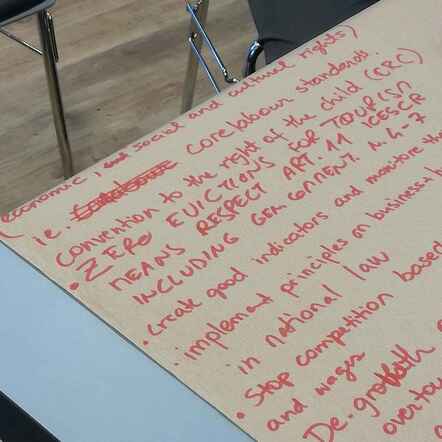 (economic, and social and cultural rights)
ie. Core labour standards.
Convention to the right of the child (CRC)
• ZERO EVICTIONS FOR TOURISM
MEANS RESPECT ART. 11 ICESCR
INCLUDING GEN. COMMENT. N. 4-7
• Create good indicators and monitore
• implement principles on business
in national law
• Stop competition based
and wages
De-growth
overtou